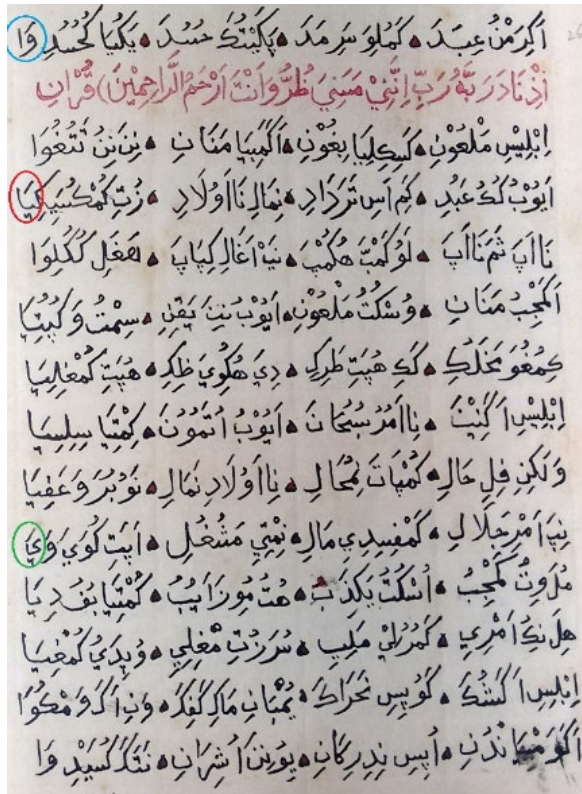 اَكِرَمْنُ عِبَدَ • كَمُلِوَ سَرِمَدَ • پَكَپَتْكَ حَسَدَ • يَكِيَا كُحُسُدِ وَا
اِذْ نَادَ رَبَّهُ رَبِّ اِنَّنِيْ مَسَنِيَ ظُرُّ وَاَنْتَ اَرْحَمُ الرَّاحِمِيْنَ) قُرْاٰنِ
اِبْلِيْسِ مَلْعُوْنِ • كَسِكِلِيَا بِغُوْنِ • اَكَمْبِيَا مَنَانِ • نِنَ نَنُ تَتُغُوَا
اَيُوْبُ كُكُ عَبُدِ • كِمَ اَسِ تَرَدَادِ • نِمَالِ نَا اَوْلَادِ • زِتِ كُمْكُسَيِيَ كِيَا
نَا اَپَ ثُمَ نَا اَپَ • لَوْ كَمَبَ هُكُمْپَ • نِيَا اَغَالِ كِپَاپَ • هَغَلِ كُكُلِوَا
اَكَمْجِبُ مَنَانِ • وُسْكُتُ مَلْعُوْنِ • اَيُوْبُ نِنَ يَقِنِ • سِمْتُ وَكُپُتِيَا
كِمُغُوَ مَخَلُكِ • كَكِ هُپَتِ طَرِكِ • دِيَ هُكُوَيَ ظِكِ • هُپَتِ كُمْغِلِيَا
اِبْلِيْسِ اَكَنِيْنَ • نِا اَمُرُ سُبُحَانَ • اَيُوْبُ اُتَمُوْنَ • كِمْتِيَا سِلِسِيَا
وَلَكِنِ فِلِ حَالِ • كُمْپَاتَ نِمُحَالِ • نِا اَوْلَادِ نَمَالِ • نَوْبُرَ وَعَفِيَا
نِپَ اَمْرِ حَلَالِ • كُمْفِسِدِيَ مَالِ • نِمْتِيَ مَشُغُلِ • اَپَتِ كُوَيَ وَيَ
مُلَوِتُ كَمْجِبُ • اُسْكُتُ يَكِذِبُ • هُتُ مُوْزَ اَيُبُ • كُمْتِيَا بَغَدِيَا
هِلِ نِكِ اَمْرِيَ • كَمْرُلِيَ مَلِپِ • سُرَ زُتِ مْغِلِيَ • وَپِدِيَ كُمْغِيَا
اِبْلِيْسِ اَكَشُكَ • كَوْپِسِ نَحَرَاكَ • يُمْبَانِ مَاكِ كَفِكَ • وَنِ اَكَ وَمْكُوَا
اَكَوَمْبِيَا نْدُنِ • اُپِسِ نْدِرِكَانِ • يُوَنِنَ اُشِرَانِ • نَتَكَ كُسَيْدِوَا